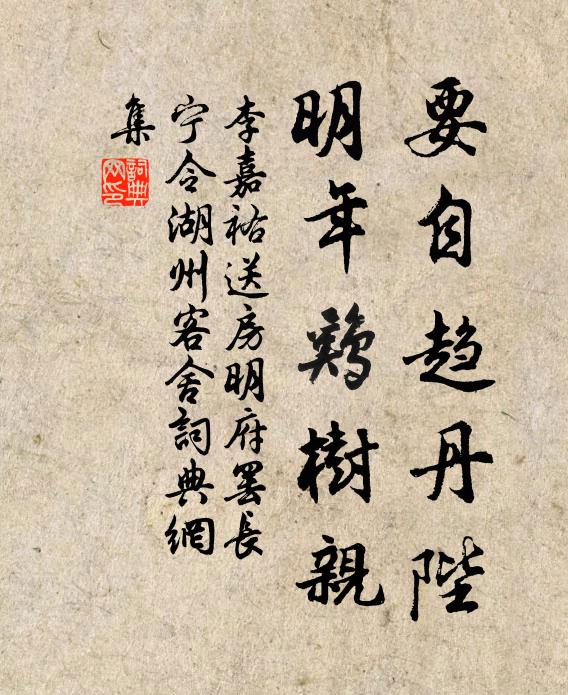 要自趋丹陛
明年鷄樹親
李嘉祐送房明府罢長
宁令湖州客舍詞典網
集
詞典
网印